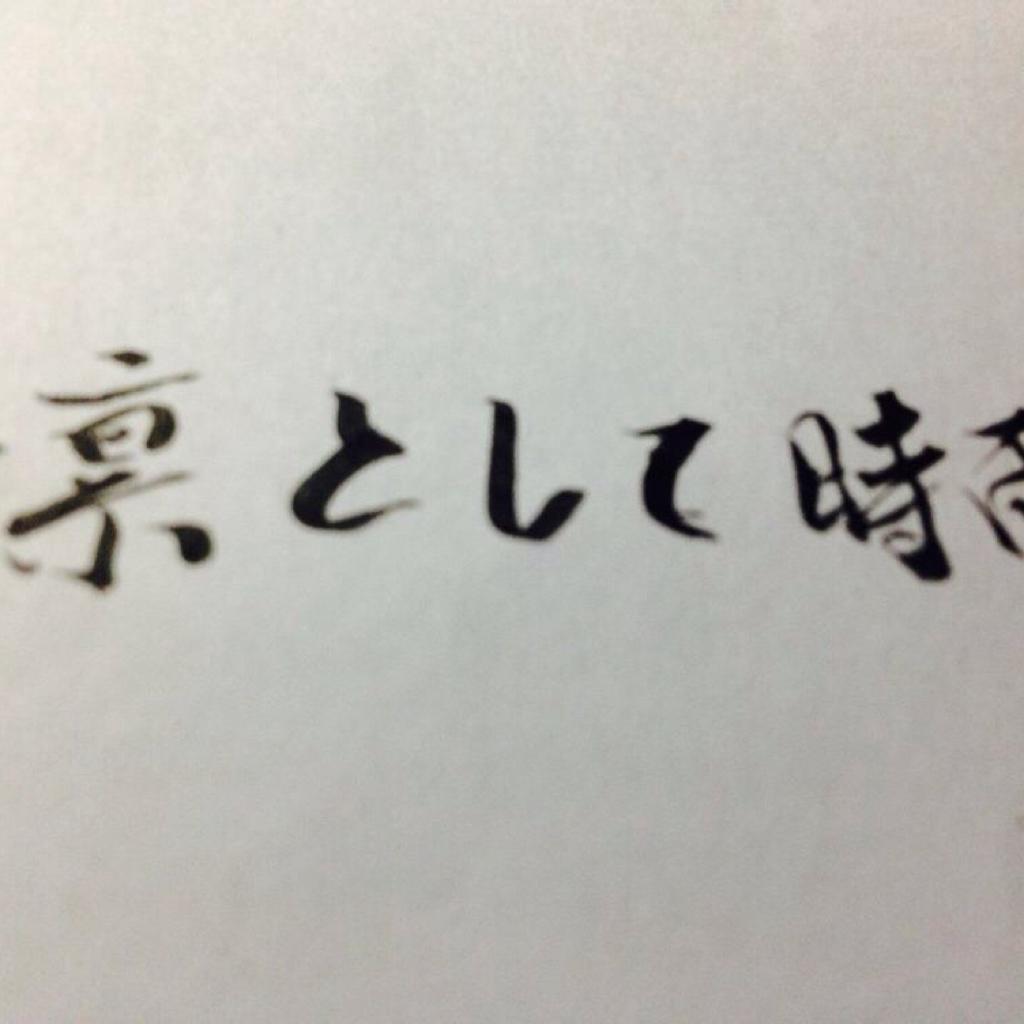 凛として時